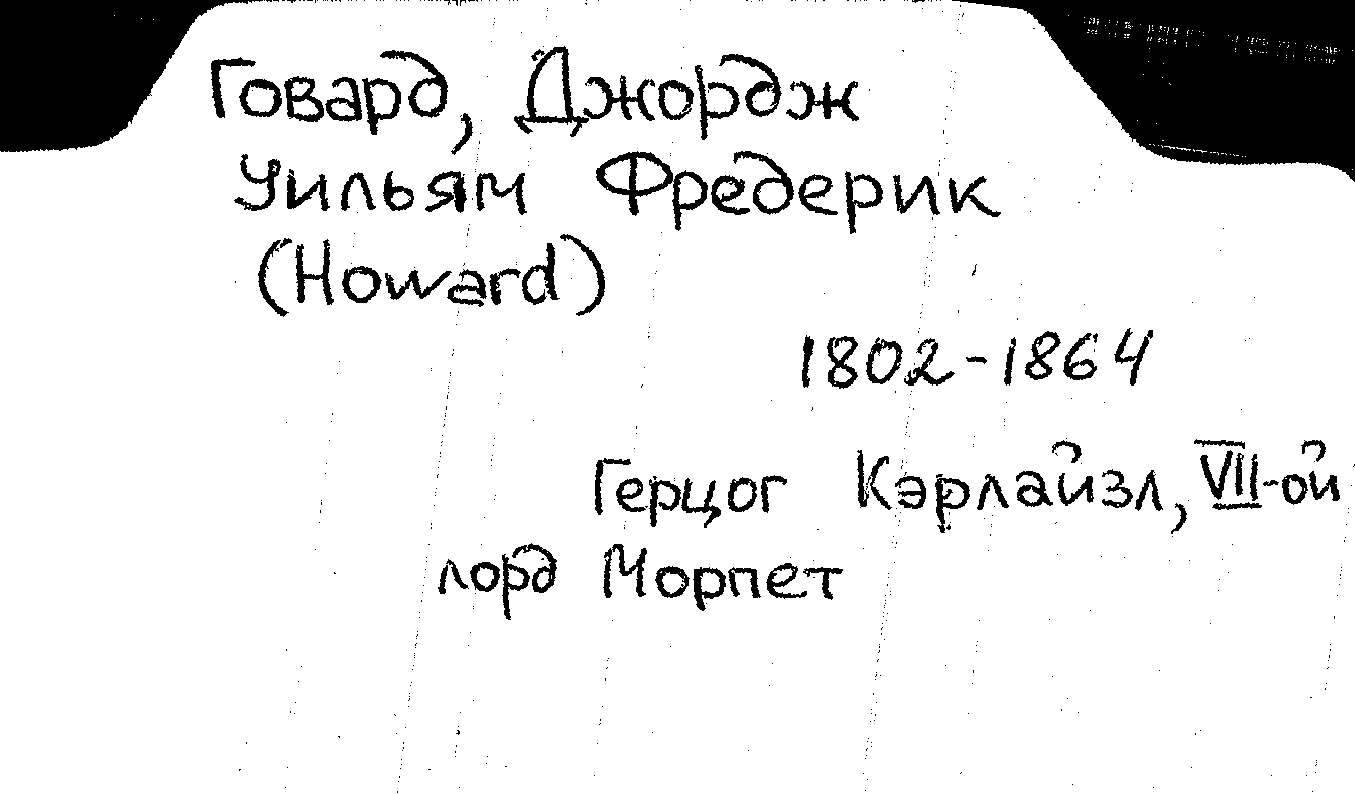 Говард, Джордж
Уильям Фредерик
(Howard)
1802-1864
Герцог Кэрлайзл, VII-ой
лорд Морпет